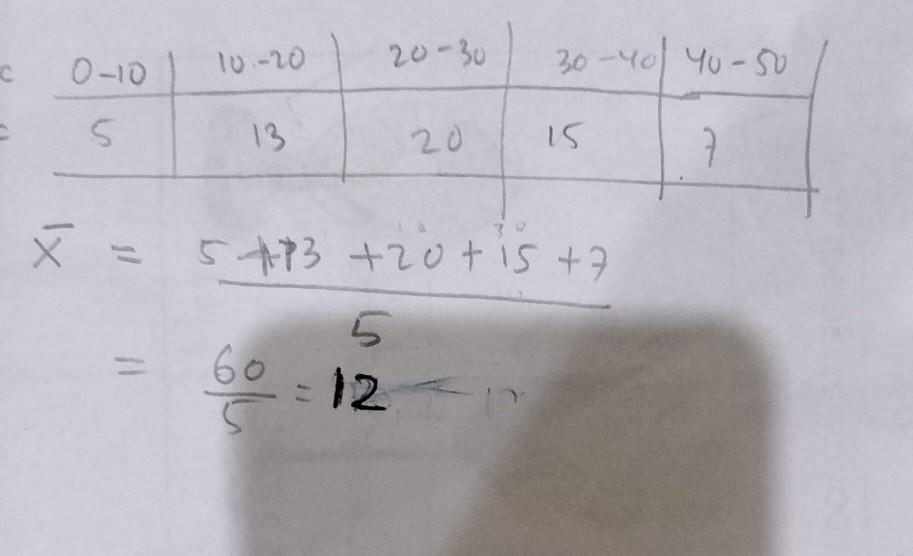 c 0-10 10-20 20-30 30-40 40-50
= 5 13 20 15 7
x̄ = 5+13+20+15+7
5
= 60/5 = 12